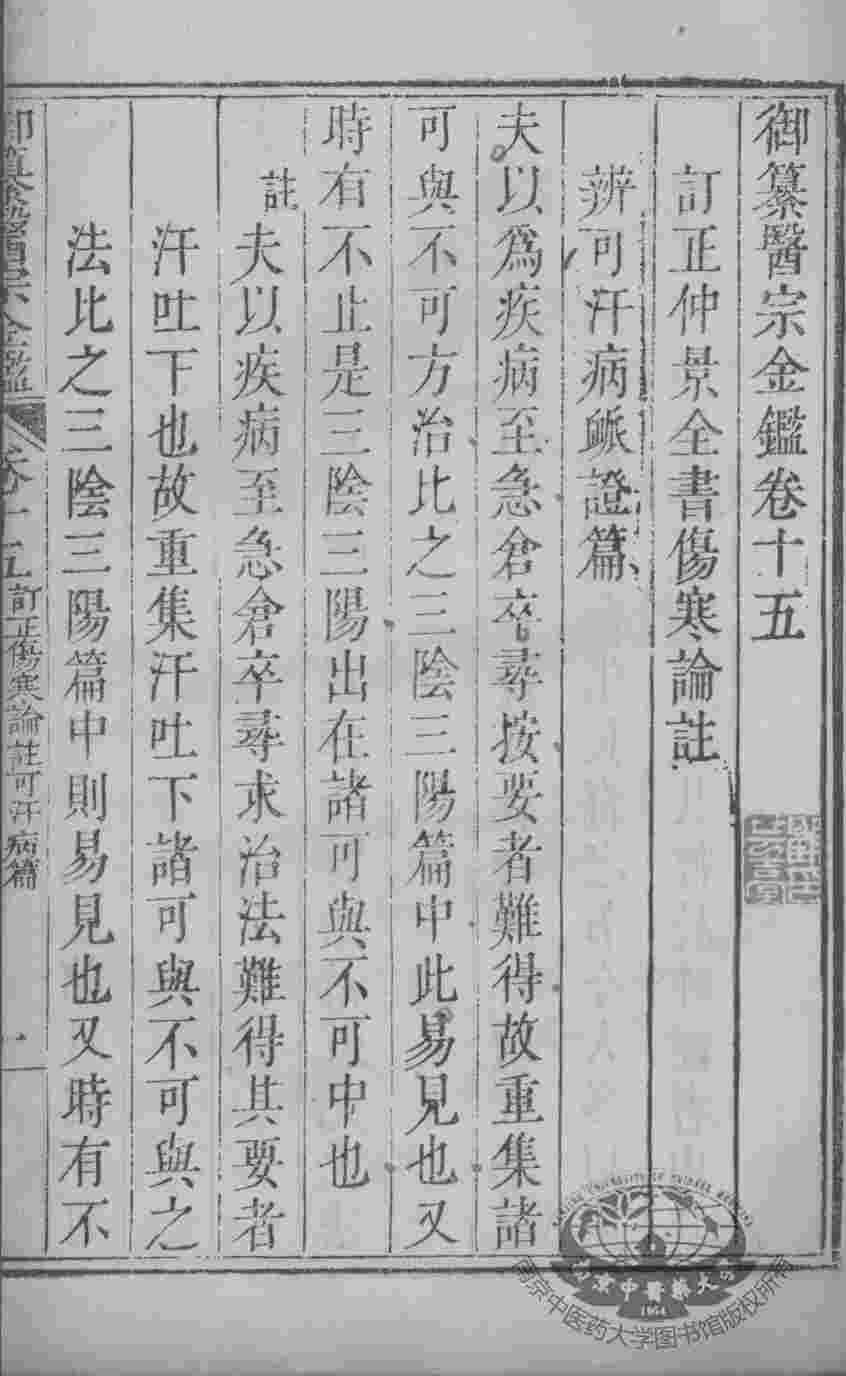 御纂醫宗金鑑卷十五
訂正仲景全書傷寒論註
辨可汗病脈證篇
夫以爲疾病至急倉卒尋按要者難得故重集諸
可與不可方治比之三陰三陽篇中此易見也又
時有不止是三陰三陽出在諸可與不可中也
註
夫以疾病至急倉卒尋求治法難得其要者
汗吐下也故重集汗吐下諸可與不可與之
法比之三陰三陽篇中則易見也又時有不
御纂醫宗金鑑
卷十五
訂正傷寒論註可汗病篇
一
南京中医药大学图书馆版权所有
1954